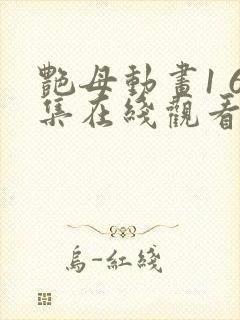 艷母動畫16
集在綫觀看
烏-紅綫